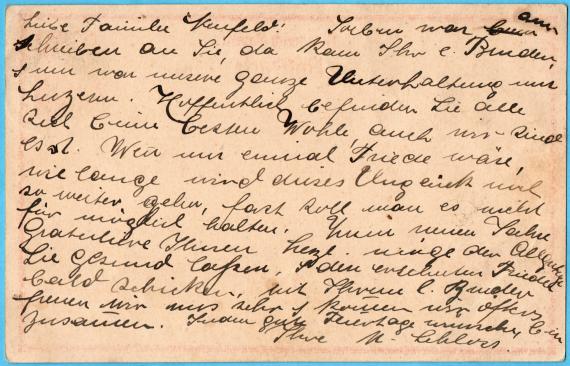 Liebe Familie Neufeld! Soeben war am
schreiben an Sie, da kam Ihr l. Bruder,
nun war unsere ganze Unterhaltung nur
Luzern. Hoffentlich befinden Sie alle
sich beim besten Wohle, auch wir sind
es. Wenn nur einmal Friede wäre,
wie lange wird dieses Unglück noch
so weiter gehn, fast soll man es nicht
für möglich halten. Zum neuen Jahre
Gratuliere Ihnen herzl. möge der Allgütige
Sie gesund lassen, den ersehnten Frieden
bald schicken, mit Ihrem l. Bruder
freuen wir uns sehr kommen wir öfters
zusammen. Indem gute Feiertage wünsche bin
Ihre M.